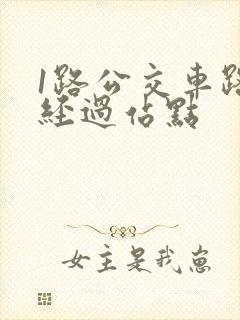 1路公交車路
經過佔點
女主是我崽